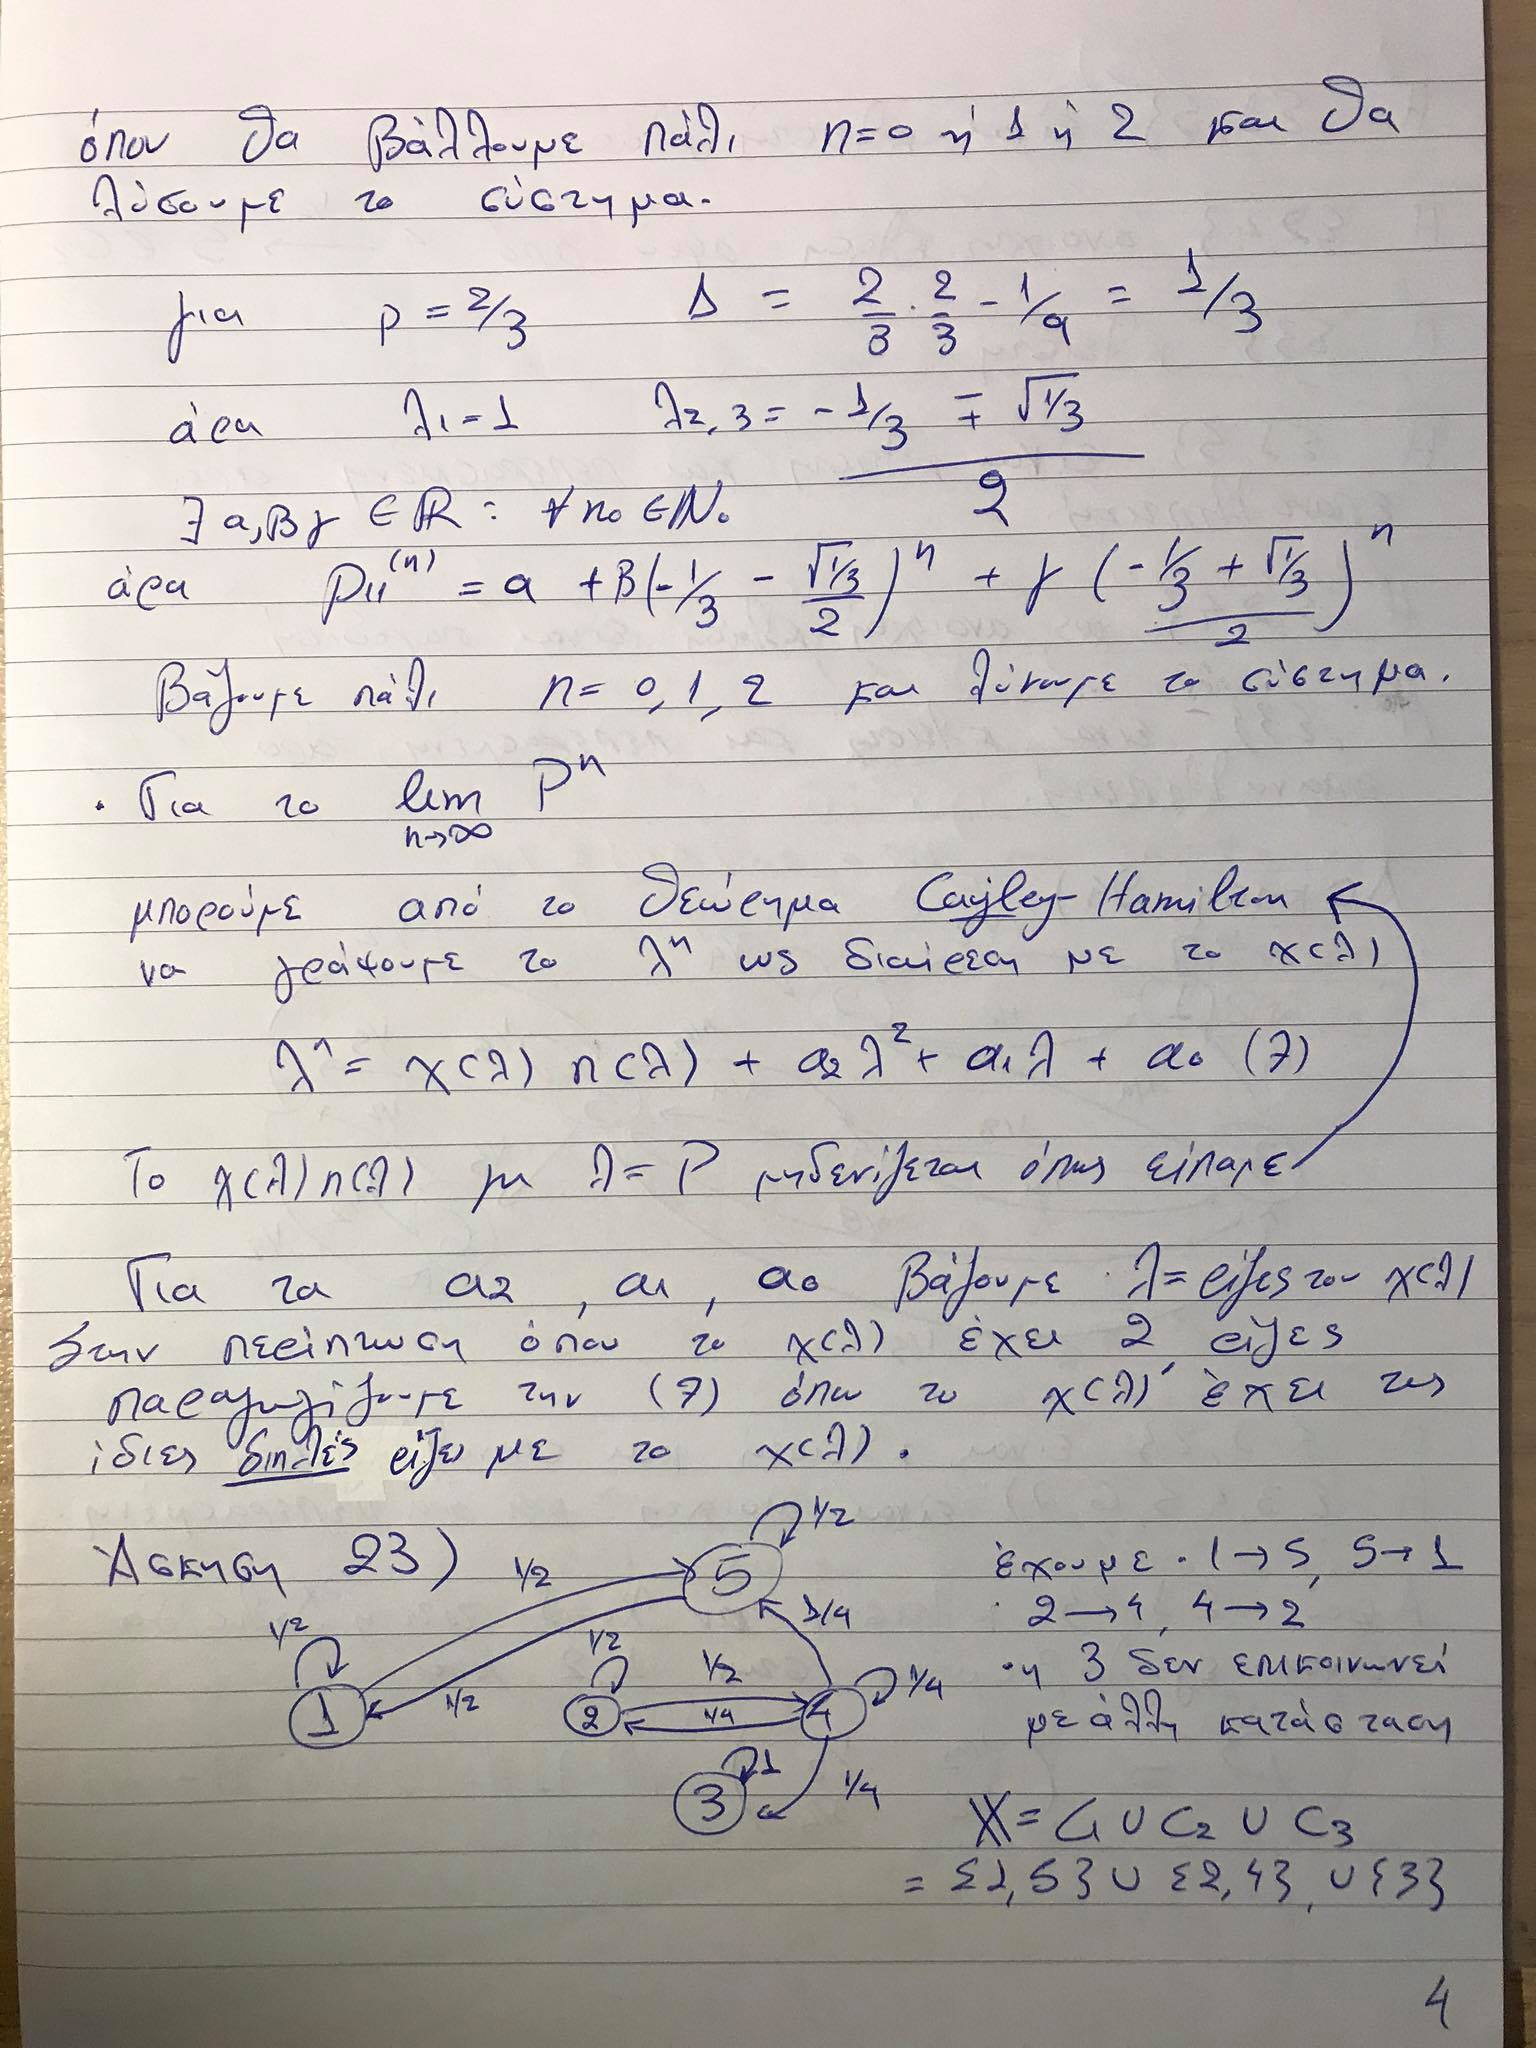 όπου θα βάλλουμε πάλι n=0 ή 1 ή 2 και θα
λύσουμε το σύστημα.
για p = 2/3 Δ = 2/3 · 2/3 - 1/9 = 1/3
άρα λ1 = 1 λ2,3 = (-1/3 ∓ √1/3) / 2
∃ α,β γ ∈ ℝ : ∀ n0 ∈ ℕ0
άρα P11^(n) = α + β(-1/3 - √1/3 / 2)^n + γ ((-1/3 + √1/3) / 2)^n
Βάζουμε πάλι n= 0, 1, 2 και λύνουμε το σύστημα.
· Για το lim n→∞ P^n
μπορούμε από το θεώρημα Cayley-Hamilton
να γράψουμε το λ^n ως διαίρεση με το χ(λ)
λ^n = χ(λ) π(λ) + α2 λ^2 + α1 λ + α0 (7)
Το χ(λ) π(λ) με λ = P μηδενίζεται όπως είπαμε
Για τα α2 , α1 , α0 βάζουμε λ= ρίζες του χ(λ)
Στην περίπτωση όπου το χ(λ) έχει 2 ρίζες
παραγωγίζουμε την (7) όπου το χ(λ)' έχει τις
ίδιες διπλές ρίζες με το χ(λ).
Άσκηση 23)
1/2
1/2
5
1/2
1
1/2
1/2
2
1/2
1/4
4
1/4
1/4
1/4
3
1
έχουμε · 1→5, 5→1
· 2→4, 4→2
· η 3 δεν επικοινωνεί
με άλλη κατάσταση
X = C1 ∪ C2 ∪ C3
= {1,5} ∪ {2,4}, ∪ {3}
4